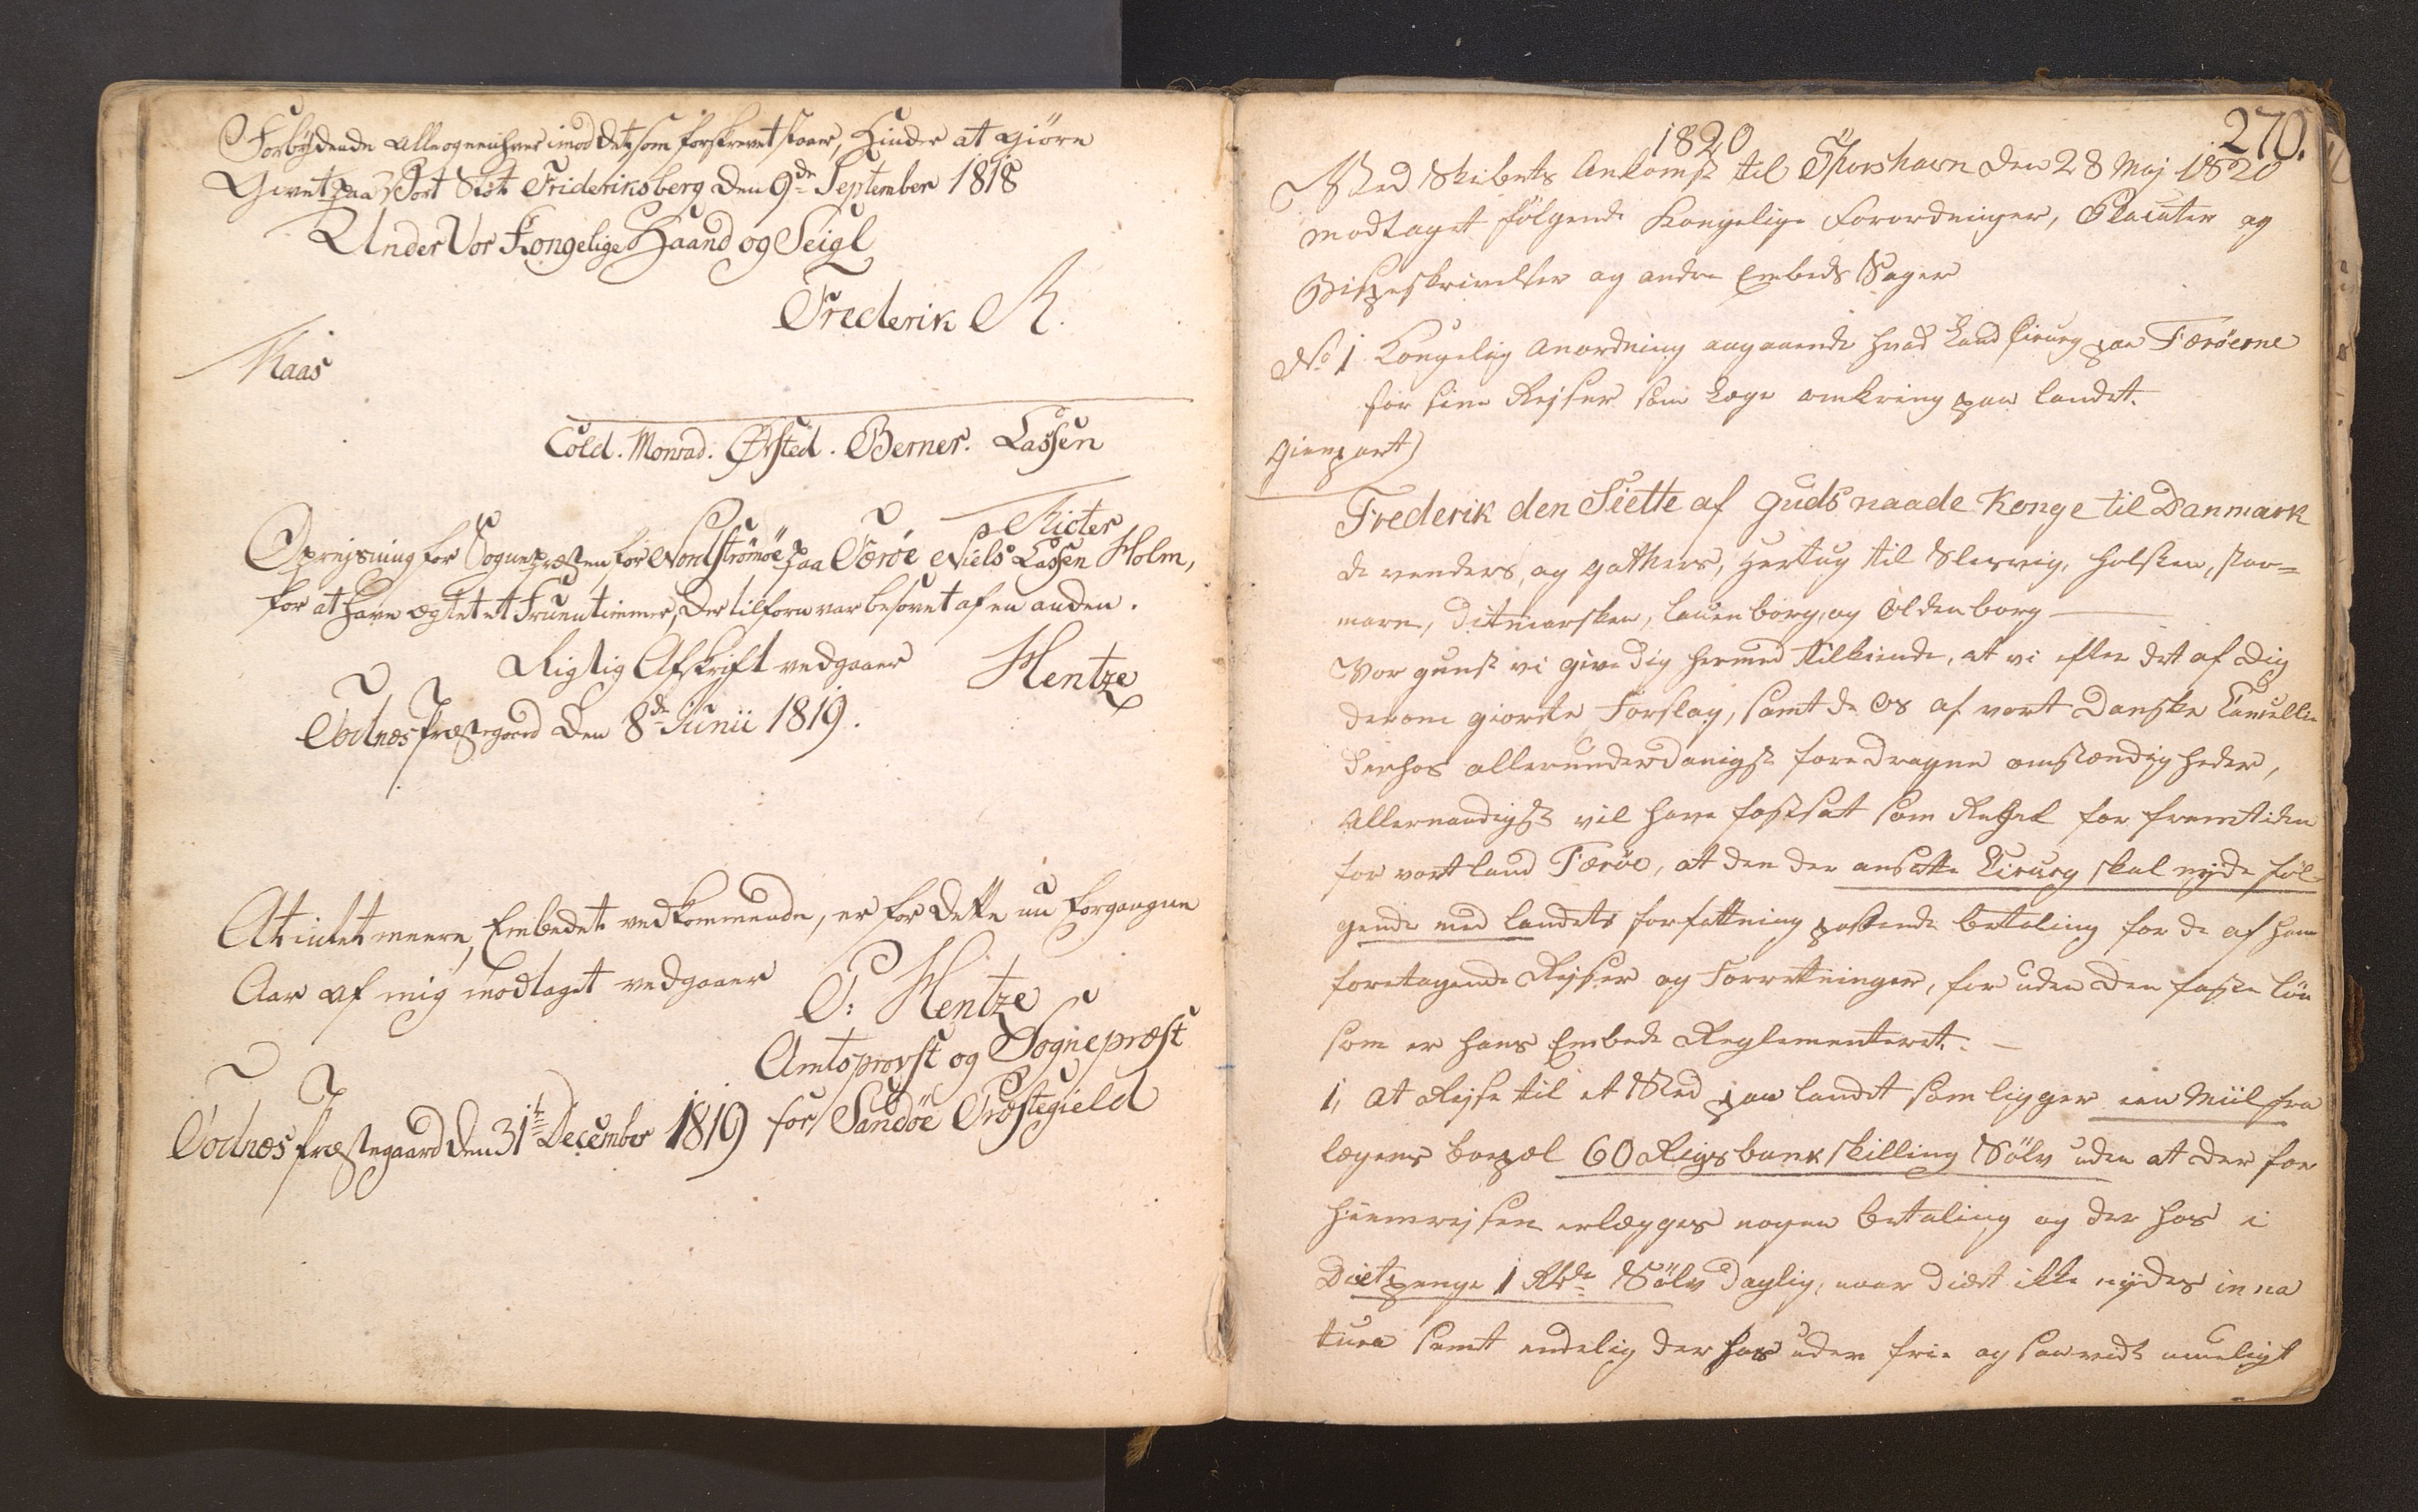 Forbydende alle og enhver imod det, som forskrevet staaer, Hinder at giöre
Givet paa Vort Slot Frideriksberg den 9de September 1818
Under Vor Kongelige Haand og Seigl
Frederik R.
Kaas
Cold. Monrad. Ørsted. Berner. Lassen
p Ricter
Opreisning for Sognepræsten for Nordströmöe paa Færöe Niels Lassen Holm,
for at have ægtet et Fruentimmer, der tilforn var besovet af en anden.
Rigtig Afskrift vedgaaer Hentze
Todnæs Præstegaard den 8de Junii 1819.
At intet meere, Embedet vedkommende, er for dette nu forgangne
Aar af mig modtaget vedgaaer P: Hentze
Amtsprovst og Sognepræst
Todnæs Præstegaard den 31te December 1819 for Sandöe Præstegield
270.
1820
Med Skibets Ankomst til Thorshavn den 28 Maj 1820
modtaget fölgende Kongelige Forordninger, Placater og
Bispeskrivelser og andre Embeds Sager
No 1 Kongelig Anordning angaaende hvad Land Cirurg paa Færöerne
for sine Rejser som Læge omkring paa Landet.
Gienpart)
Frederik den Siette af Guds naade Konge til Danmark
de venders, og gothers, Hertug til Slesvig, Holsten, Stor=
marn, Ditmarsken, Lauenborg, og Oldenborg
Vor gunst vi give dig hermed tilkiende, at vi efter det af Dig
derom giorte Forslag, samt de Os af vort Danske Cancellie
derhos allerunderdanigst foredragne omstændigheder,
Allernaadigst vil have fastsat som Regel for fremtiden
for vort Land Færöe, at den der ansatte Cirurg skal nyde föl-
gende med Landets forfattning passende betaling for de af ham
foretagende Rejser og Forretninger, for uden den faste Lön
som er hans Embede Reglementeret. —
1, At Rejse til et Sted paa Landet som ligger een Miil fra
Lægens bopæl 60 Rigsbankskilling Sölv uden at der for
Hiemrejsen erlægges nogen betaling og der hos i
Diætpenge 1 Rbdr Sölv Daglig, naar diæt ikke nydes in na
tura samt endelig der hos uden frie og saavidt mueligt